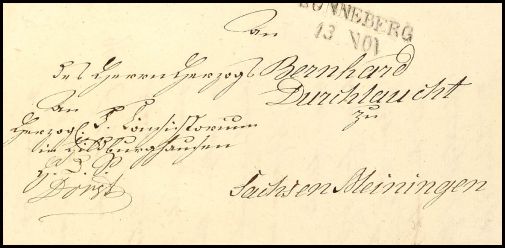 SONNEBERG
13 NOV
An
des Herrn Herzogs Bernhard
Durchlaucht
zu
Sachsen Meiningen
An
Herzogl. S. Consistorium
in Hildburghausen
Dorst